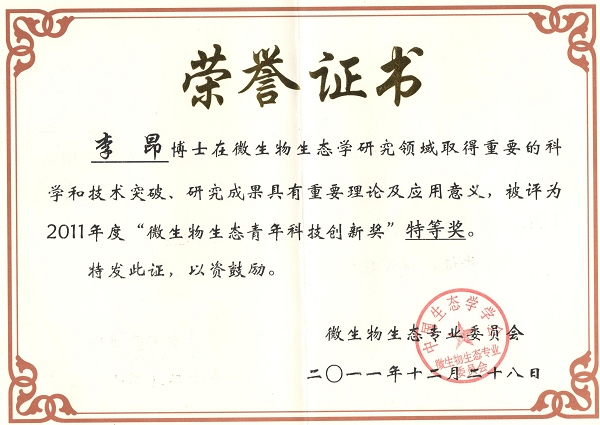 荣誉证书
李 昂博士在微生物生态学研究领域取得重要的科
学和技术突破、研究成果具有重要理论及应用意义，被评为
2011年度“微生物生态青年科技创新奖”特等奖。
特发此证，以资鼓励。
微生物生态专业委员会
二〇一一年十二月二十八日
中国生态学学会
微生物生态专业
委员会